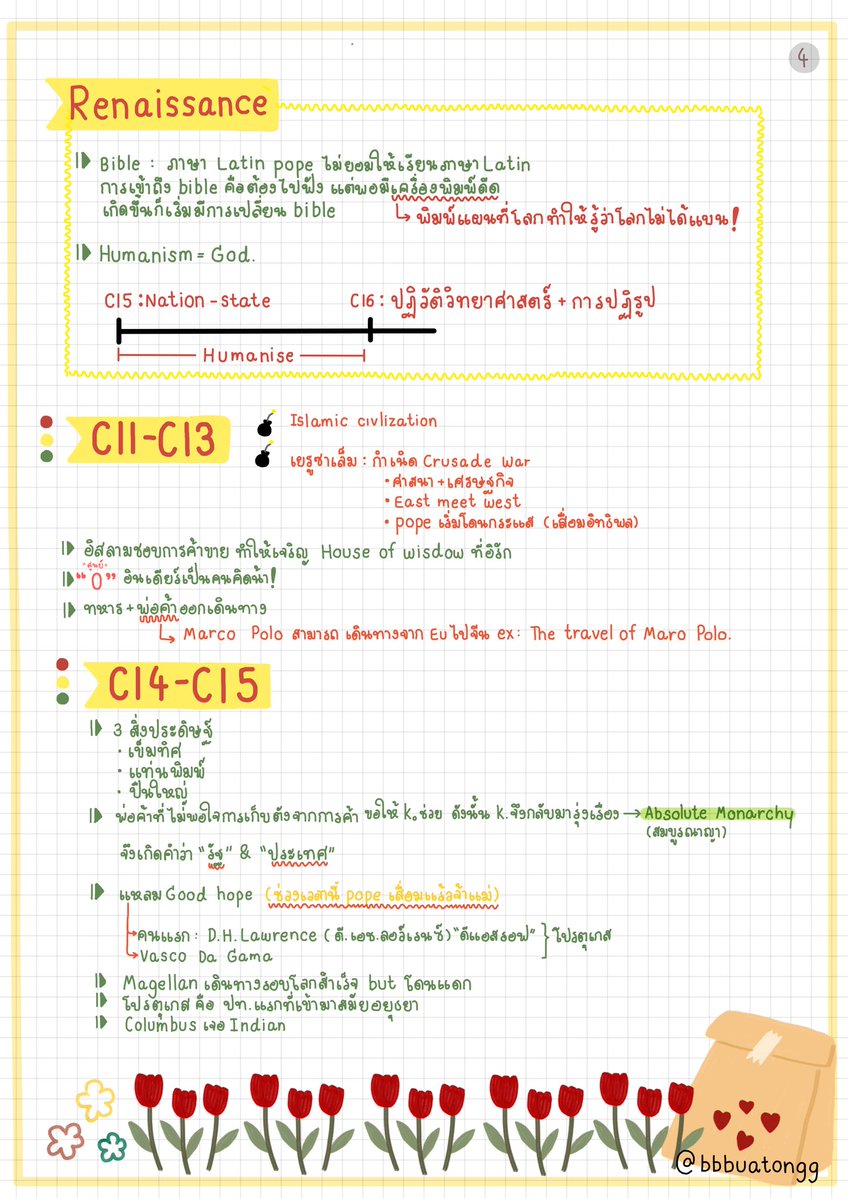 4
Renaissance
Bible : ภาษา Latin pope ไม่ยอมให้เรียนภาษา Latin
การเข้าถึง bible คือต้องไปฟัง แต่พอมีเครื่องพิมพ์ดีด
เกิดขึ้นก็เริ่มมีการเปลี่ยน bible
พิมพ์แผนที่โลก ทำให้รู้ว่าโลกไม่ได้แบน!
Humanism = God.
C15 : Nation-state
C16 : ปฏิวัติวิทยาศาสตร์ + การปฏิรูป
Humanise
C11-C13
Islamic civlization
เยรูซาเล็ม : กำเนิด Crusade War
• ศาสนา + เศรษฐกิจ
• East meet west
• pope เริ่มโดนกระแส (เสื่อมอิทธิพล)
อิสลามชอบการค้าขาย ทำให้เจริญ House of wisdow ที่อิรัก
*ศูนย์*
"0" อินเดียร์เป็นคนคิดน้า!
ทหาร + พ่อค้าออกเดินทาง
Marco Polo สามารถ เดินทางจาก Eu ไปจีน ex: The travel of Maro Polo.
C14-C15
3 สิ่งประดิษฐ์
• เข็มทิศ
• แท่นพิมพ์
• ปืนใหญ่
พ่อค้าที่ไม่พอใจการเก็บตังจากการค้า ขอให้ K. ช่วย ดังนั้น K. จึงกลับมารุ่งเรื่อง → Absolute Monarchy
(สมบูรณาญา)
จึงเกิดคำว่า "รัฐ" & "ประเทศ"
แหลม Good hope (ช่วงเวลานี้ pope เสื่อมแร้วจ้าแม่)
คนแรก : D.H. Lawrence (ดี.เอช.ลอว์เรนซ์) "ดีแอสรอฟ" } โปรตุเกส
Vasco Da Gama
Magellan เดินทางรอบโลกสำเร็จ but โดนแดก
โปรตุเกส คือ ปท.แรกที่เข้ามาสมัยอยุธยา
Columbus เจอ Indian
@bbbuatongg